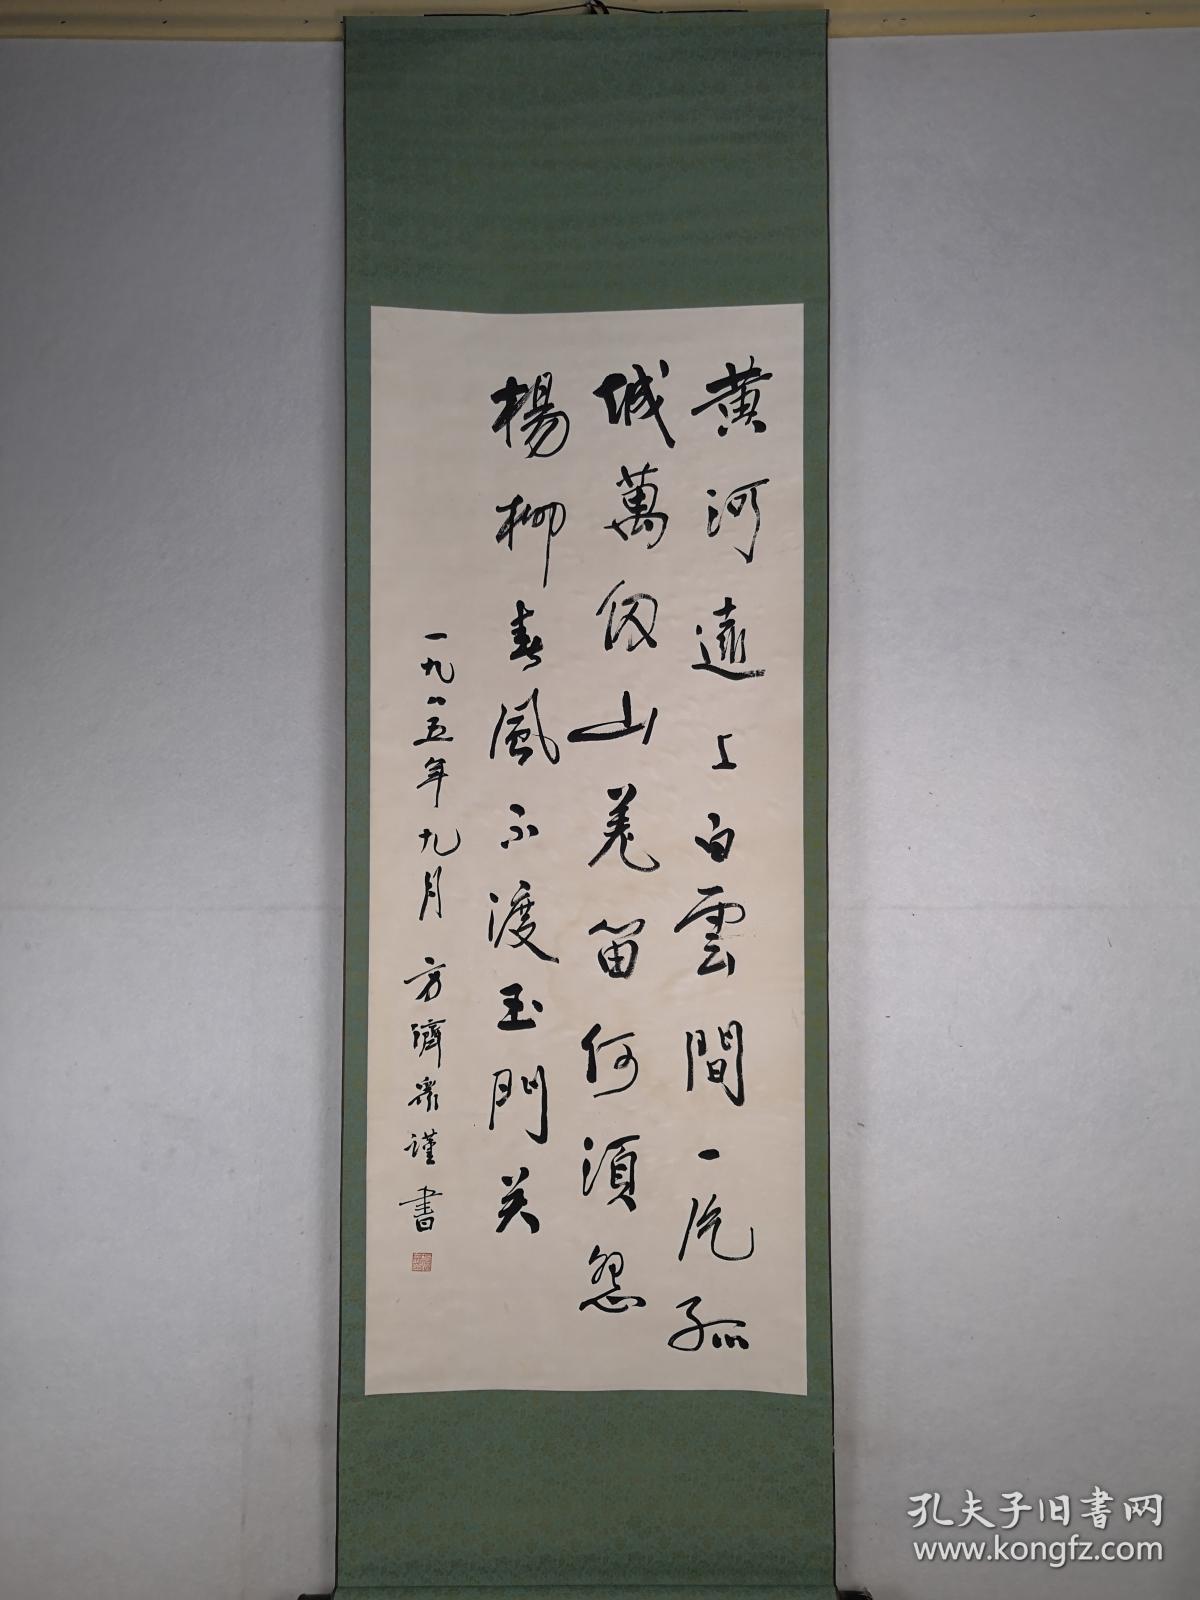 黄河遠上白雲間一片孤
城萬仞山羌笛何須怨
楊柳春風不渡玉門关
一九八五年九月方濟衆謹書
孔夫子旧书网
www.kongfz.com